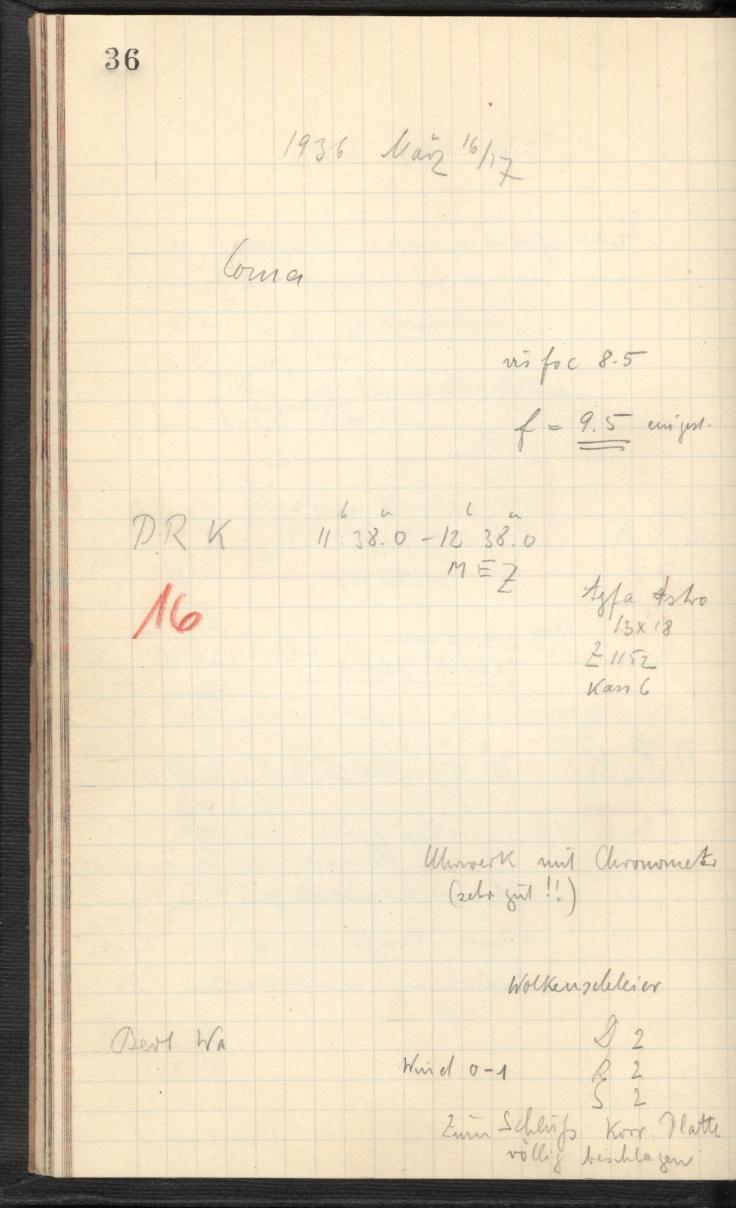 36
1936 März 16/17
Coma
vis foc 8.5
f = 9.5 eingest.
DRK 11h 38.0m - 12h 38.0m
MEZ
16
Agfa Astro
13x18
Z 1152
Kass 6
Uhrwerk mit Chronometer
(sehr gut !!)
Wolkenschleier
D 2
Wind 0-1 R 2
S 2
Zum Schluß Korr. Platte
völlig beschlagen